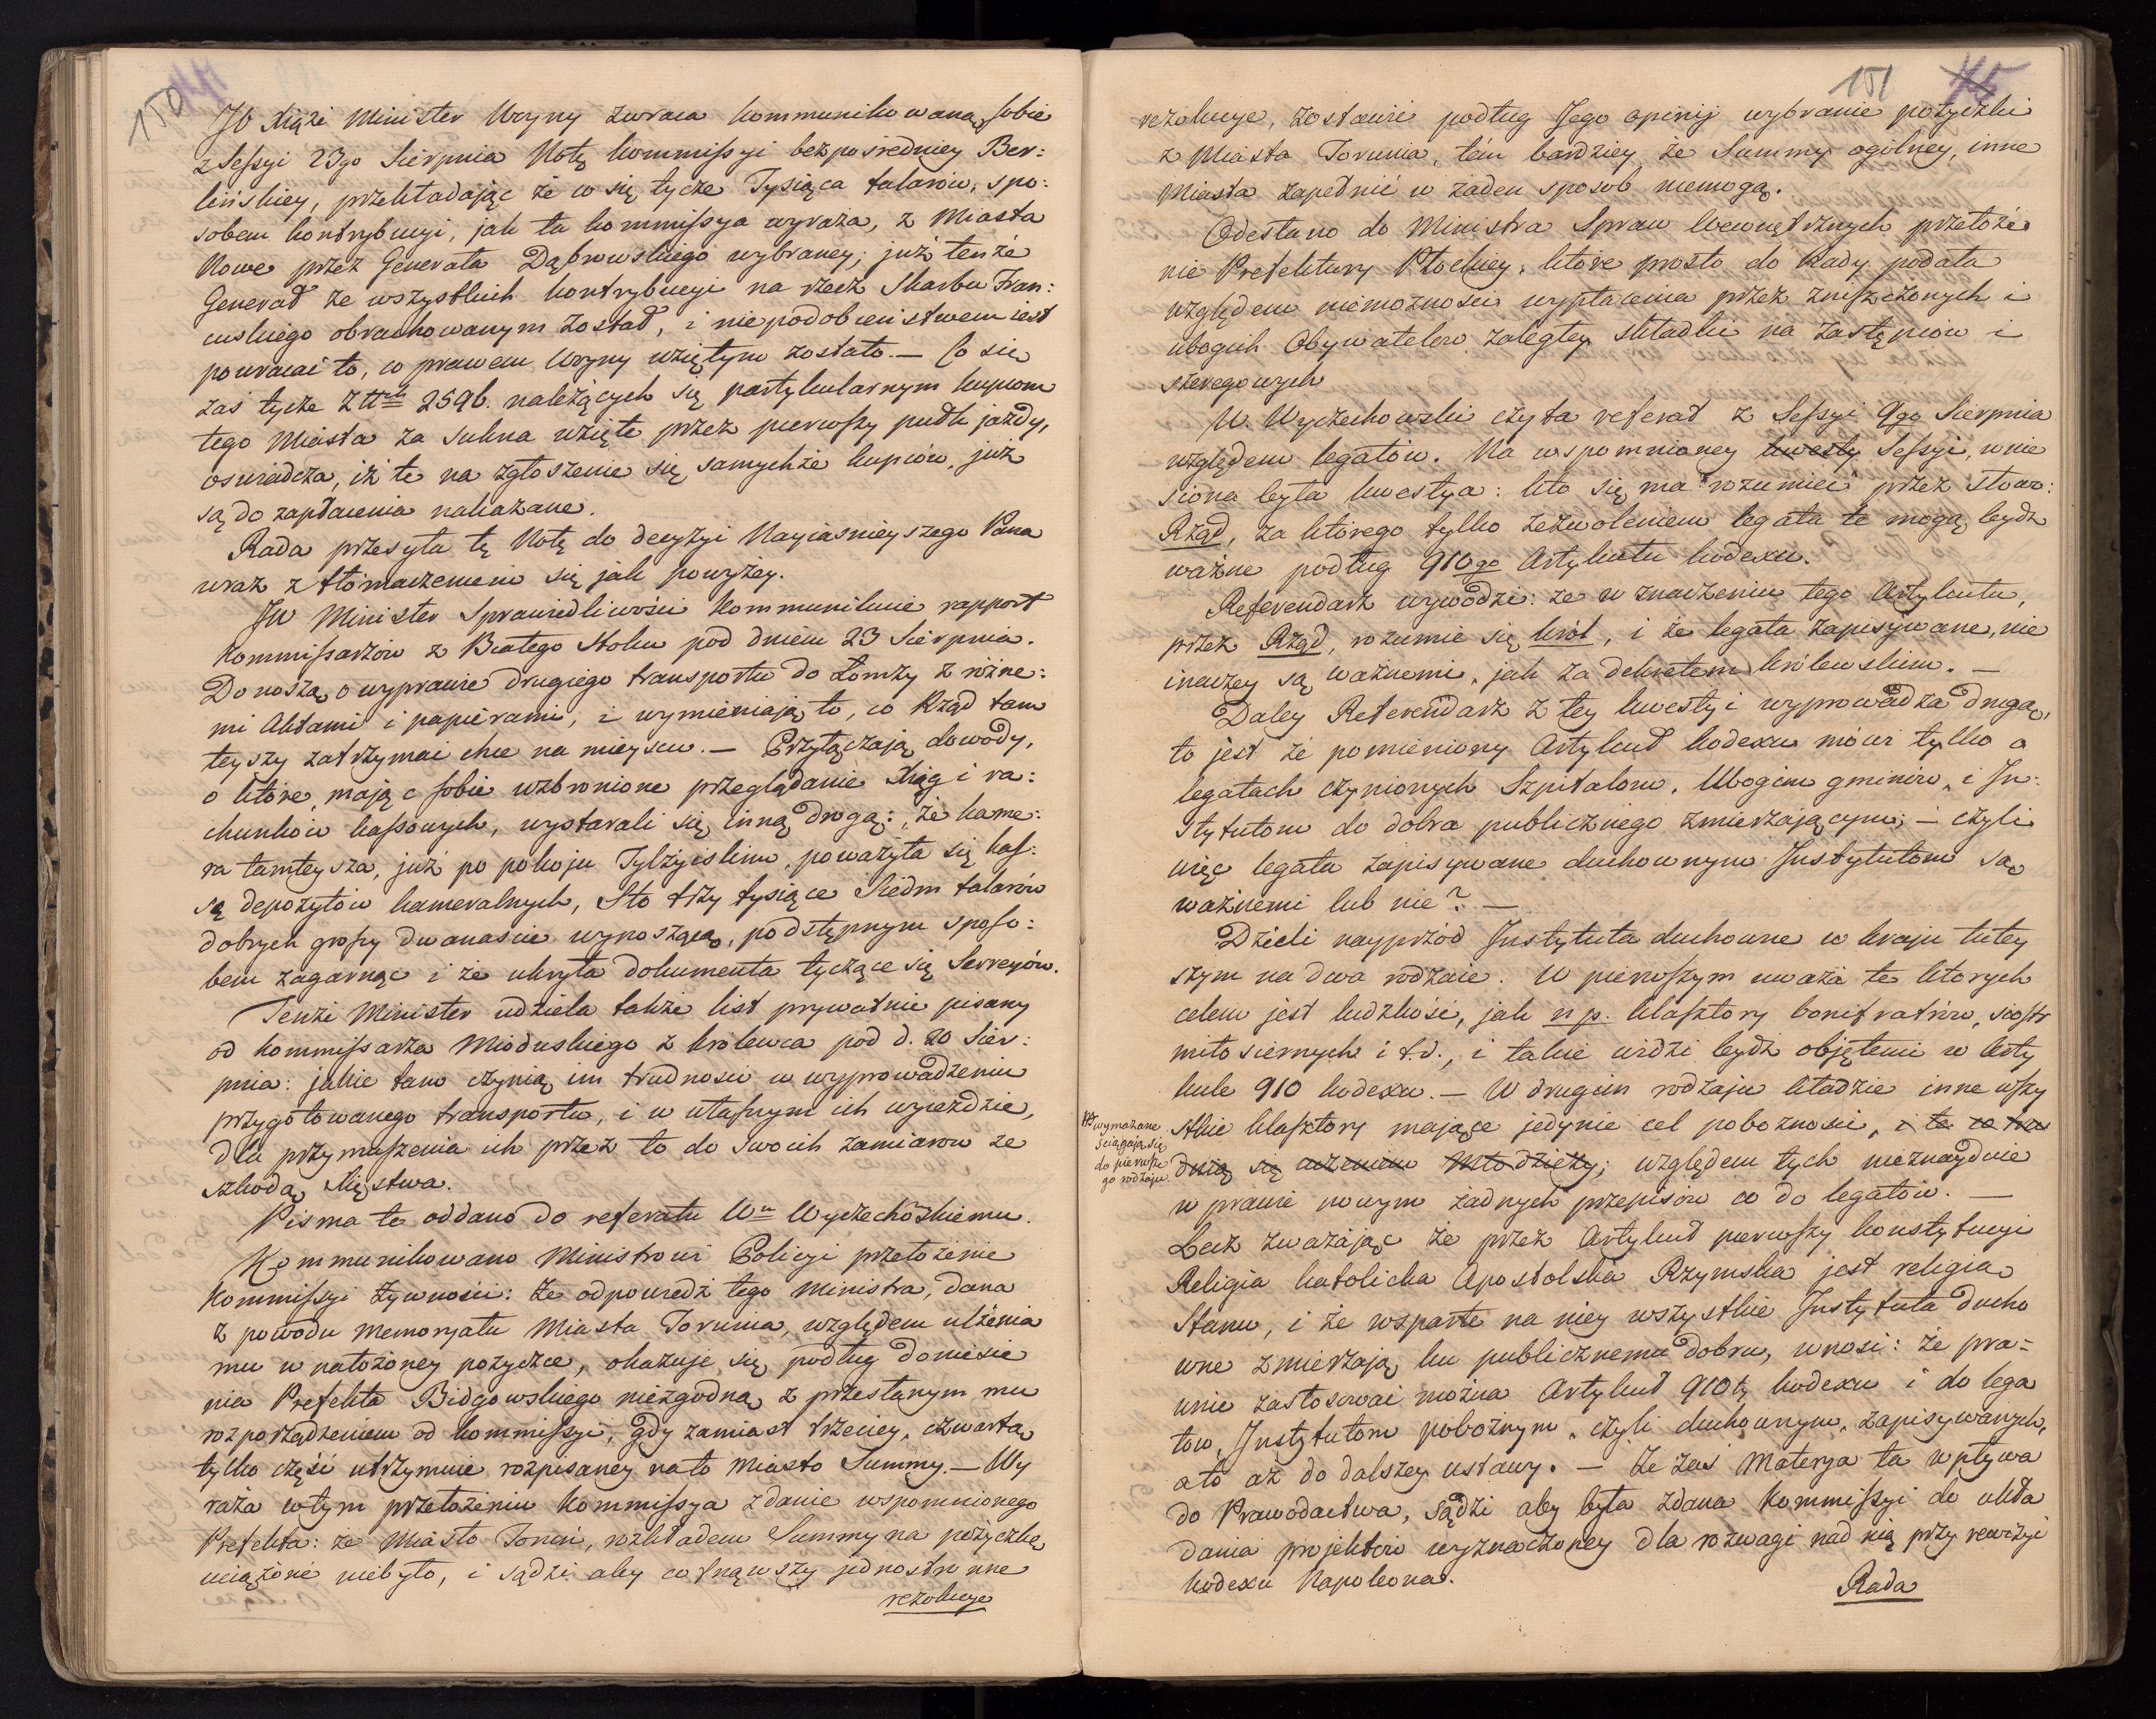 150
JO Xiąże Minister Woyny zwraca kommunikowaną sobie
z Sessyi 23go Sierpnia Notę kommissyi bezpośredniey Ber:
lińskiey, przekładając że co się tycze Tysiąca talarów, spo:
sobem kontrybucyi, jak ta kommissya wyraża, z Miasta
Nowe przez Generała Dąbrowskiego wybraney, już tenże
Generał ze wszystkich kontrybucyi na rzecz Skarbu Fran:
cuskiego obrachowanym został, i niepodobieństwem iest
powracać to, co prawem Woyny wziętym zostało. — Co się
zaś tycze 2596. należących się partykularnym kupcom
tego Miasta za sukna wzięte przez pierwszy pułk jazdy,
oswiadcza, iż te na zgłoszenie się samychże kupców, już
są do zapłacenia nakazane.
Rada przesyła tę Notę do decyzyi Nayiasnieyszego Pana
wraz z tłómaczeniem się jak powyżey.
JW Minister Sprawiedliwości kommunikuie rapport
kommissarzów z Białego Stoku pod dniem 23 Sierpnia.
Donoszą o wyprawie drugiego transportu do Łomży z różne:
mi Aktami i papierami, i wymieniają to, co Rząd tam
teyszy zatrzymać chce na mieyscu. — Przyłączają dowody,
o które, mając sobie wzbronione przeglądanie Xiąg i ra:
chunków kassowych, wystarali się inną drogą: „że kame:
ra tamteysza, już po pokoju Tylżyckim, poważyła się kas:
są depozytów kameralnych, Sto trzy tysiące Siedm talarów
dobrych groszy dwanaście wynoszącą, podstępnym sposo:
bem zagarnąc i że ukryła dokumenta tyczące się Serwejów.
Tenże Minister udziela także list prywatnie pisany
od kommissarza Mioduskiego z Królewca pod d. 20 Sier:
pnia: jakie tam czynią im trudności w wyprowadzeniu
przygotowanego transportu, i w własnym ich wyjeździe,
dla przymuszenia ich przez to do swoich zamiarów ze
szkodą Xięstwa.
Pisma te oddano do referatu Wu Wyczechoskiemu.
Kommunikowano Ministrowi Policyi przełożenie
kommissyi żywności: że odpowiedź tego Ministra, dana
z powodu memoryału Miasta Torunia, względem ulżenia
mu w nałożoney pożyczce, okazuje się podług doniesie
nia Prefekta Bidgowskiego niezgodną z przesłanym mu
rozporządzeniem od kommissyi, gdy zamiast trzeciey, czwartą
tylko część utrzymuie rozpisaney na to Miasto Summy. — Wy
raża w tym przełożeniu kommissya zdanie wspomnionego
Prefekta: że Miasto Toruń, rozkładem Summy na pożyczkę
uciążone niebyło, i sądzi aby cofnąwszy jednostronne
rezolucye
151 75
rezolucye, zostawić podług Jego opinij wybranie pożyczki
z Miasta Torunia, tém bardziey że Summy ogólney, inne
Miasta zapełnić w żaden sposob niemogą.
Odesłano do Ministra Spraw Wewnętrznych przełoże
nie Prefektury Płockiey, które prosto do Rady podała
względem niemożności wypłacenia przez zniszczonych i
ubogich Obywatelów zaległey składki na zastępców i
szeregowych
W. Wyczechowski czyta referat z Sessyi 9go Sierpnia
względem legatów. Na wspomnioney kwesty Sessyi, wnie
siona była kwestya: kto się ma rozumieć przez słowo:
Rząd, za którego tylko zezwoleniem legata te mogą bydz
ważne podług 910go Artykułu kodexu.
Referendarz wywodzi: że w znaczeniu tego Artykułu,
przez Rząd, rozumie się król, i że legata zapisywane, nie
inaczey są ważnemi, jak za dekretem królewskim. —
Daley Referendarz z tey kwestyi wyprowadza drugą,
to jest że pomieniony Artykuł kodexu mówi tylko o
legatach czynionych Szpitalom, Ubogim gminów, i In:
stytutom do dobra publicznego zmierzającym; — czyli
więc legata zapisywane duchownym Instytutom są
ważnemi lub nie? —
Dzieli nayprzód Instytuta duchowne w kraju tutey
szym na dwa rodzaie. W pierwszym uważa te których
celem jest ludzkość, jak n.p. klasztory bonifratrów, siostr
miłosiernych i t.d., i takie widzi bydź objętemi w Arty
kule 910 kodexu. — W drugim rodzaju kładzie inne wszy
stkie klasztory mające jedynie cel pobożności, i te co tru
dnią się uczeniem Młodzieży; względem tych nieznayduie
wymazane
ściągają się
do pierwsze
go rodzaju
w prawie nowym żadnych przepisów co do legatów. —
Lecz zważając że przez Artykuł pierwszy konstytucyi
Religia katolicka Apostolska Rzymska jest religią
Stanu, i że wsparte na niey wszystkie Instytuta ducho
wne zmierzają ku publicznemu dobru, wnosi: że pra=
wnie zastosować można Artykuł 910ty kodexu i do lega
tów, Instytutom pobożnym, czyli duchownym, zapisywanych,
a to aż do dalszey ustawy. — Że zaś Materya ta wpływa
do Prawodactwa, sądzi aby była zdana kommissyi do ukła
dania projektów wyznaczoney dla rozwagi nad nią przy rewizyi
kodexu Napoleona.
Rada